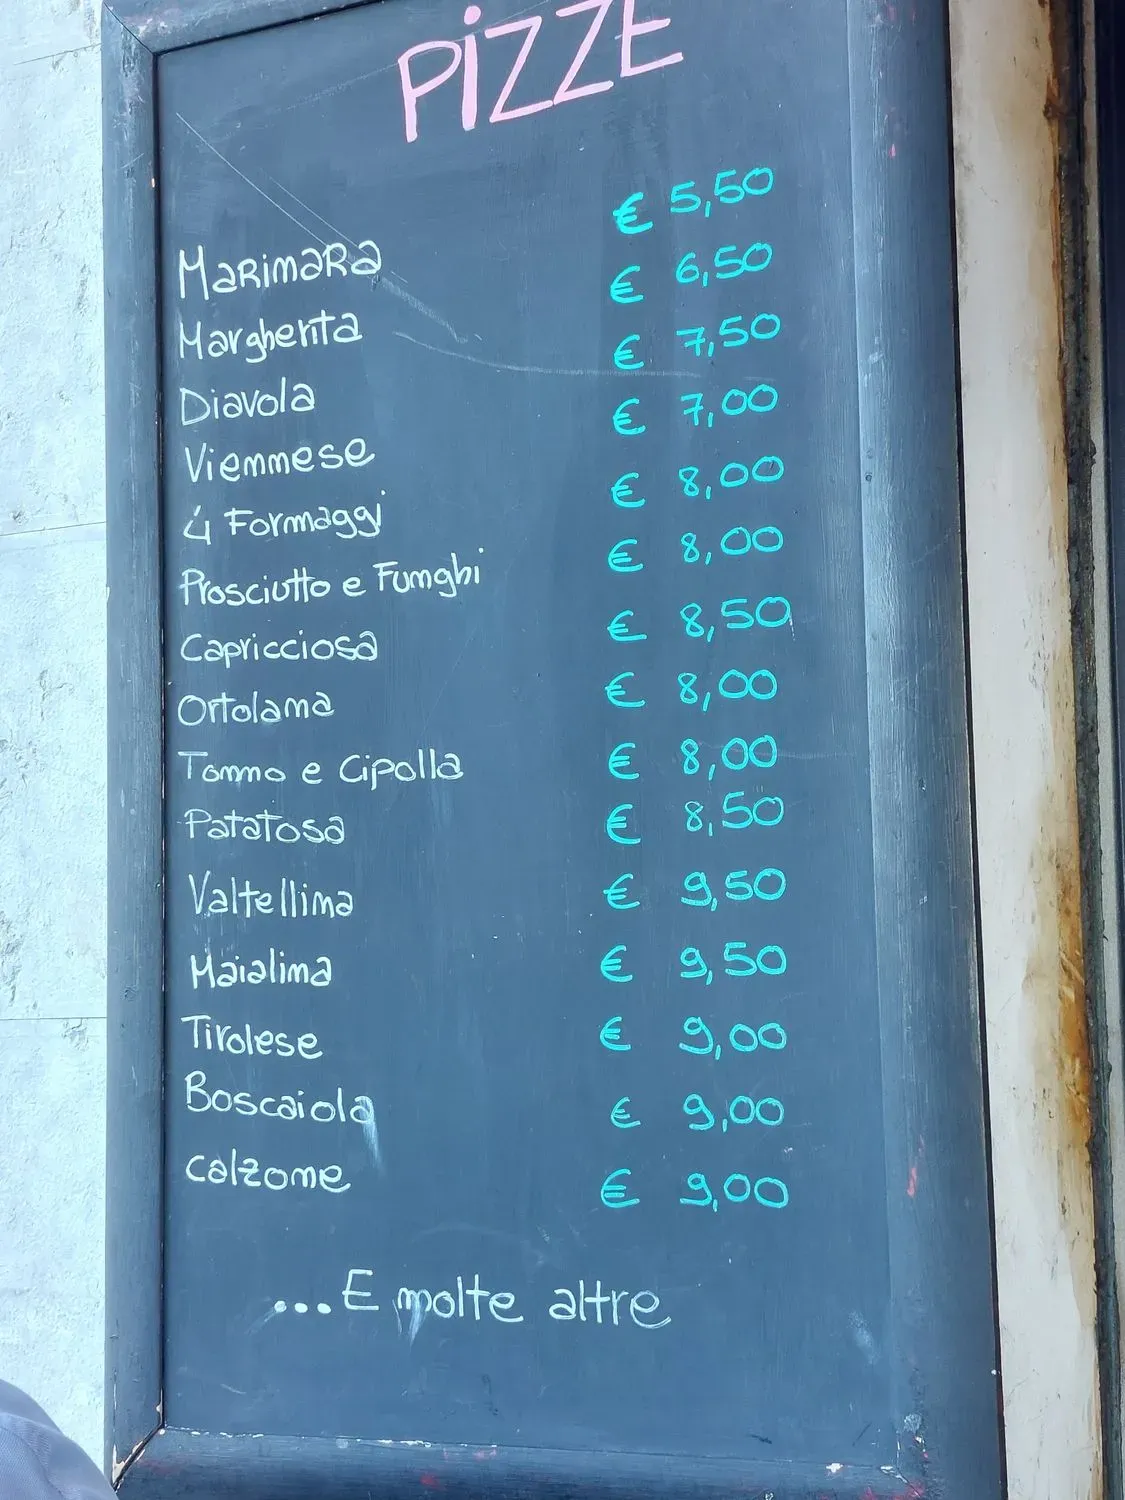 PiZZE
Marimara € 5,50
Margherita € 6,50
Diavola € 7,50
Viemmese € 7,00
4 Formaggi € 8,00
Prosciutto e Fumghi € 8,00
Capricciosa € 8,50
Ortolama € 8,00
Tommo e Cipolla € 8,00
Patatosa € 8,50
Valtellima € 9,50
Maialima € 9,50
Tirolese € 9,00
Boscaiola € 9,00
calzome € 9,00
...E molte altre